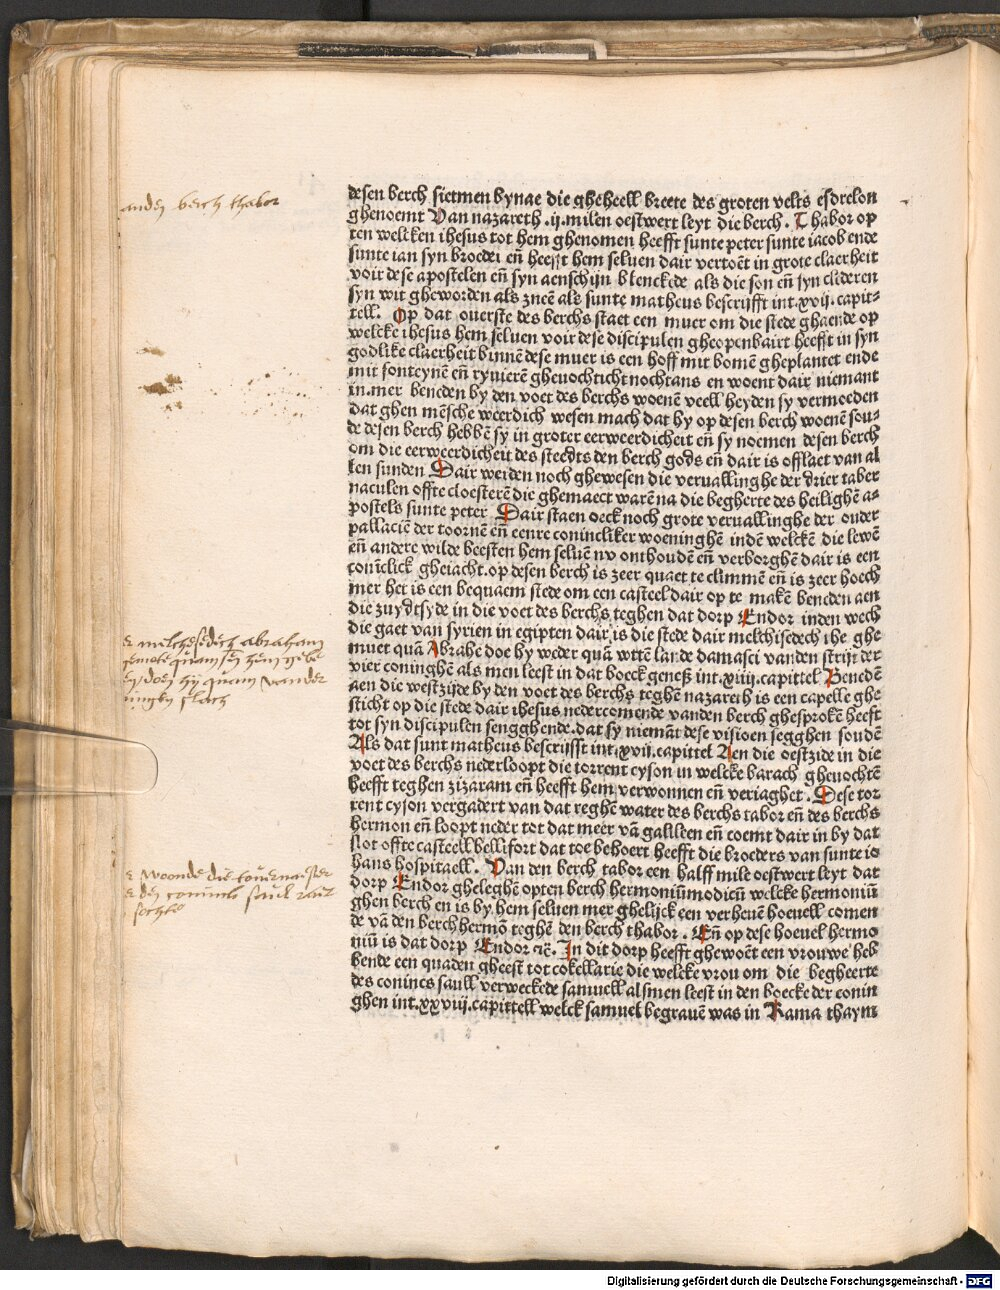 desen berch sietmen bynae die gheheell breete des groten velts esdrelon
ghenoemt Van nazareth .ij. milen oestwert leyt die berch . Thabor op
ten welcken ihesus tot hem ghenomen heefft sunte peter sunte iacob ende
sunte ian syn broeder en̄ heefft hem seluen dair vertoēt in grote claerheit
voir dese apostelen en̄ syn aenschijn blenckede als die son en̄ syn clederen
syn wit gheworden als zneē als sunte matheus bescrijfft int .xvij. capit-
tell. Op dat ouerste des berchs staet een muer om die stede ghaende op
welcke ihesus hem seluen voir dese discipulen gheopenbairt heefft in syn
godlike claerheit binnē dese muer is een hoff mit bomē gheplantet ende
mit fonteynē en̄ ryuierē gheuochticht nochtans en woent dair niemant
in. mer beneden by den voet des berchs woenē veell heyden sy vermoeden
dat ghen mēsche weerdich wesen mach dat hy op desen berch woenē sou-
de desen berch hebbē sy in groter eerweerdicheit en̄ sy noemen desen berch
om die eerweerdicheit des steedts den berch gods en̄ dair is offlaet van al
len sunden Dair werden noch ghewesen die veruallinghe der drier taber
naculen offte cloesterē die ghemaect warē na die begherte des heilighē a-
postels sunte peter Dair staen oeck noch grote veruallinghe der ouder
pallaciē der toornē en̄ eenre conincliker woeninghē indē welckē die lewē
en̄ andere wilde beesten hem seluē nv onthoudē en̄ verborghē dair is een
conīclick gheiacht. op desen berch is zeer quaet te climmē en̄ is zeer hoech
mer het is een bequaem stede om een casteel dair op te makē beneden aen
die zuydtsyde in die voet des berchs teghen dat dorp Endor inden wech
die gaet van syrien in egipten dair is die stede dair melchisedech ihe ghe
muet quā Abrahē doe hy weder quā wttē lande damasci vanden strijt der
vier coninghē als men leest in dat boeck genes int .xiiij. capittel Benedē
aen die westzijde by den voet des berchs teghē nazareth is een capelle ghe
sticht op die stede dair ihesus nedercomende vanden berch ghesprokē heeft
tot syn discipulen sengghende. dat sy niemāt dese visioen segghen soudē
Als dat sunt matheus bescrijfft int .xvij. capittel Aen die oestzide in die
voet des berchs nederloopt die torrent cyson in welcke barach gheuochtē
heefft teghen zizaram en̄ heefft hem verwonnen en̄ veriaghet . Dese tor
rent cyson vergadert van dat reghē water des berchs tabor en̄ des berchs
hermon en̄ loopt neder tot dat meer vā galileen en̄ coemt dair in by dat
slot offte castell bellifort dat toe behoert heefft die broeders van sunte io
hans hospitaell. Van den berch tabor een halff mile oestwert leyt dat
dorp Endor gheleghē opten berch hermoniū modicū welcke hermoniū
ghen berch en is by hem seluen mer ghelijck een verheuē hoeuell comen
de vā den berch hermō teghē den berch thabor . En̄ op dese hoeuel hermo
niū is dat dorp Endor rē. In dit dorp heefft ghewoēt een vrouwe heb
bende een quaden gheest tot cokellarie die welcke vrou om die begheerte
des conincs saull verweckede samuell alsmen leest in den boecke der conin
ghen int .xxviij. capittell welck samuel begrauē was in Rama thaym
anden berch thabor
melchesedech abraham
gemoete quam
doen hij quam vander
slach
woonde die
coninck saul raet
sochte
Digitalisierung gefördert durch die Deutsche Forschungsgemeinschaft - DFG